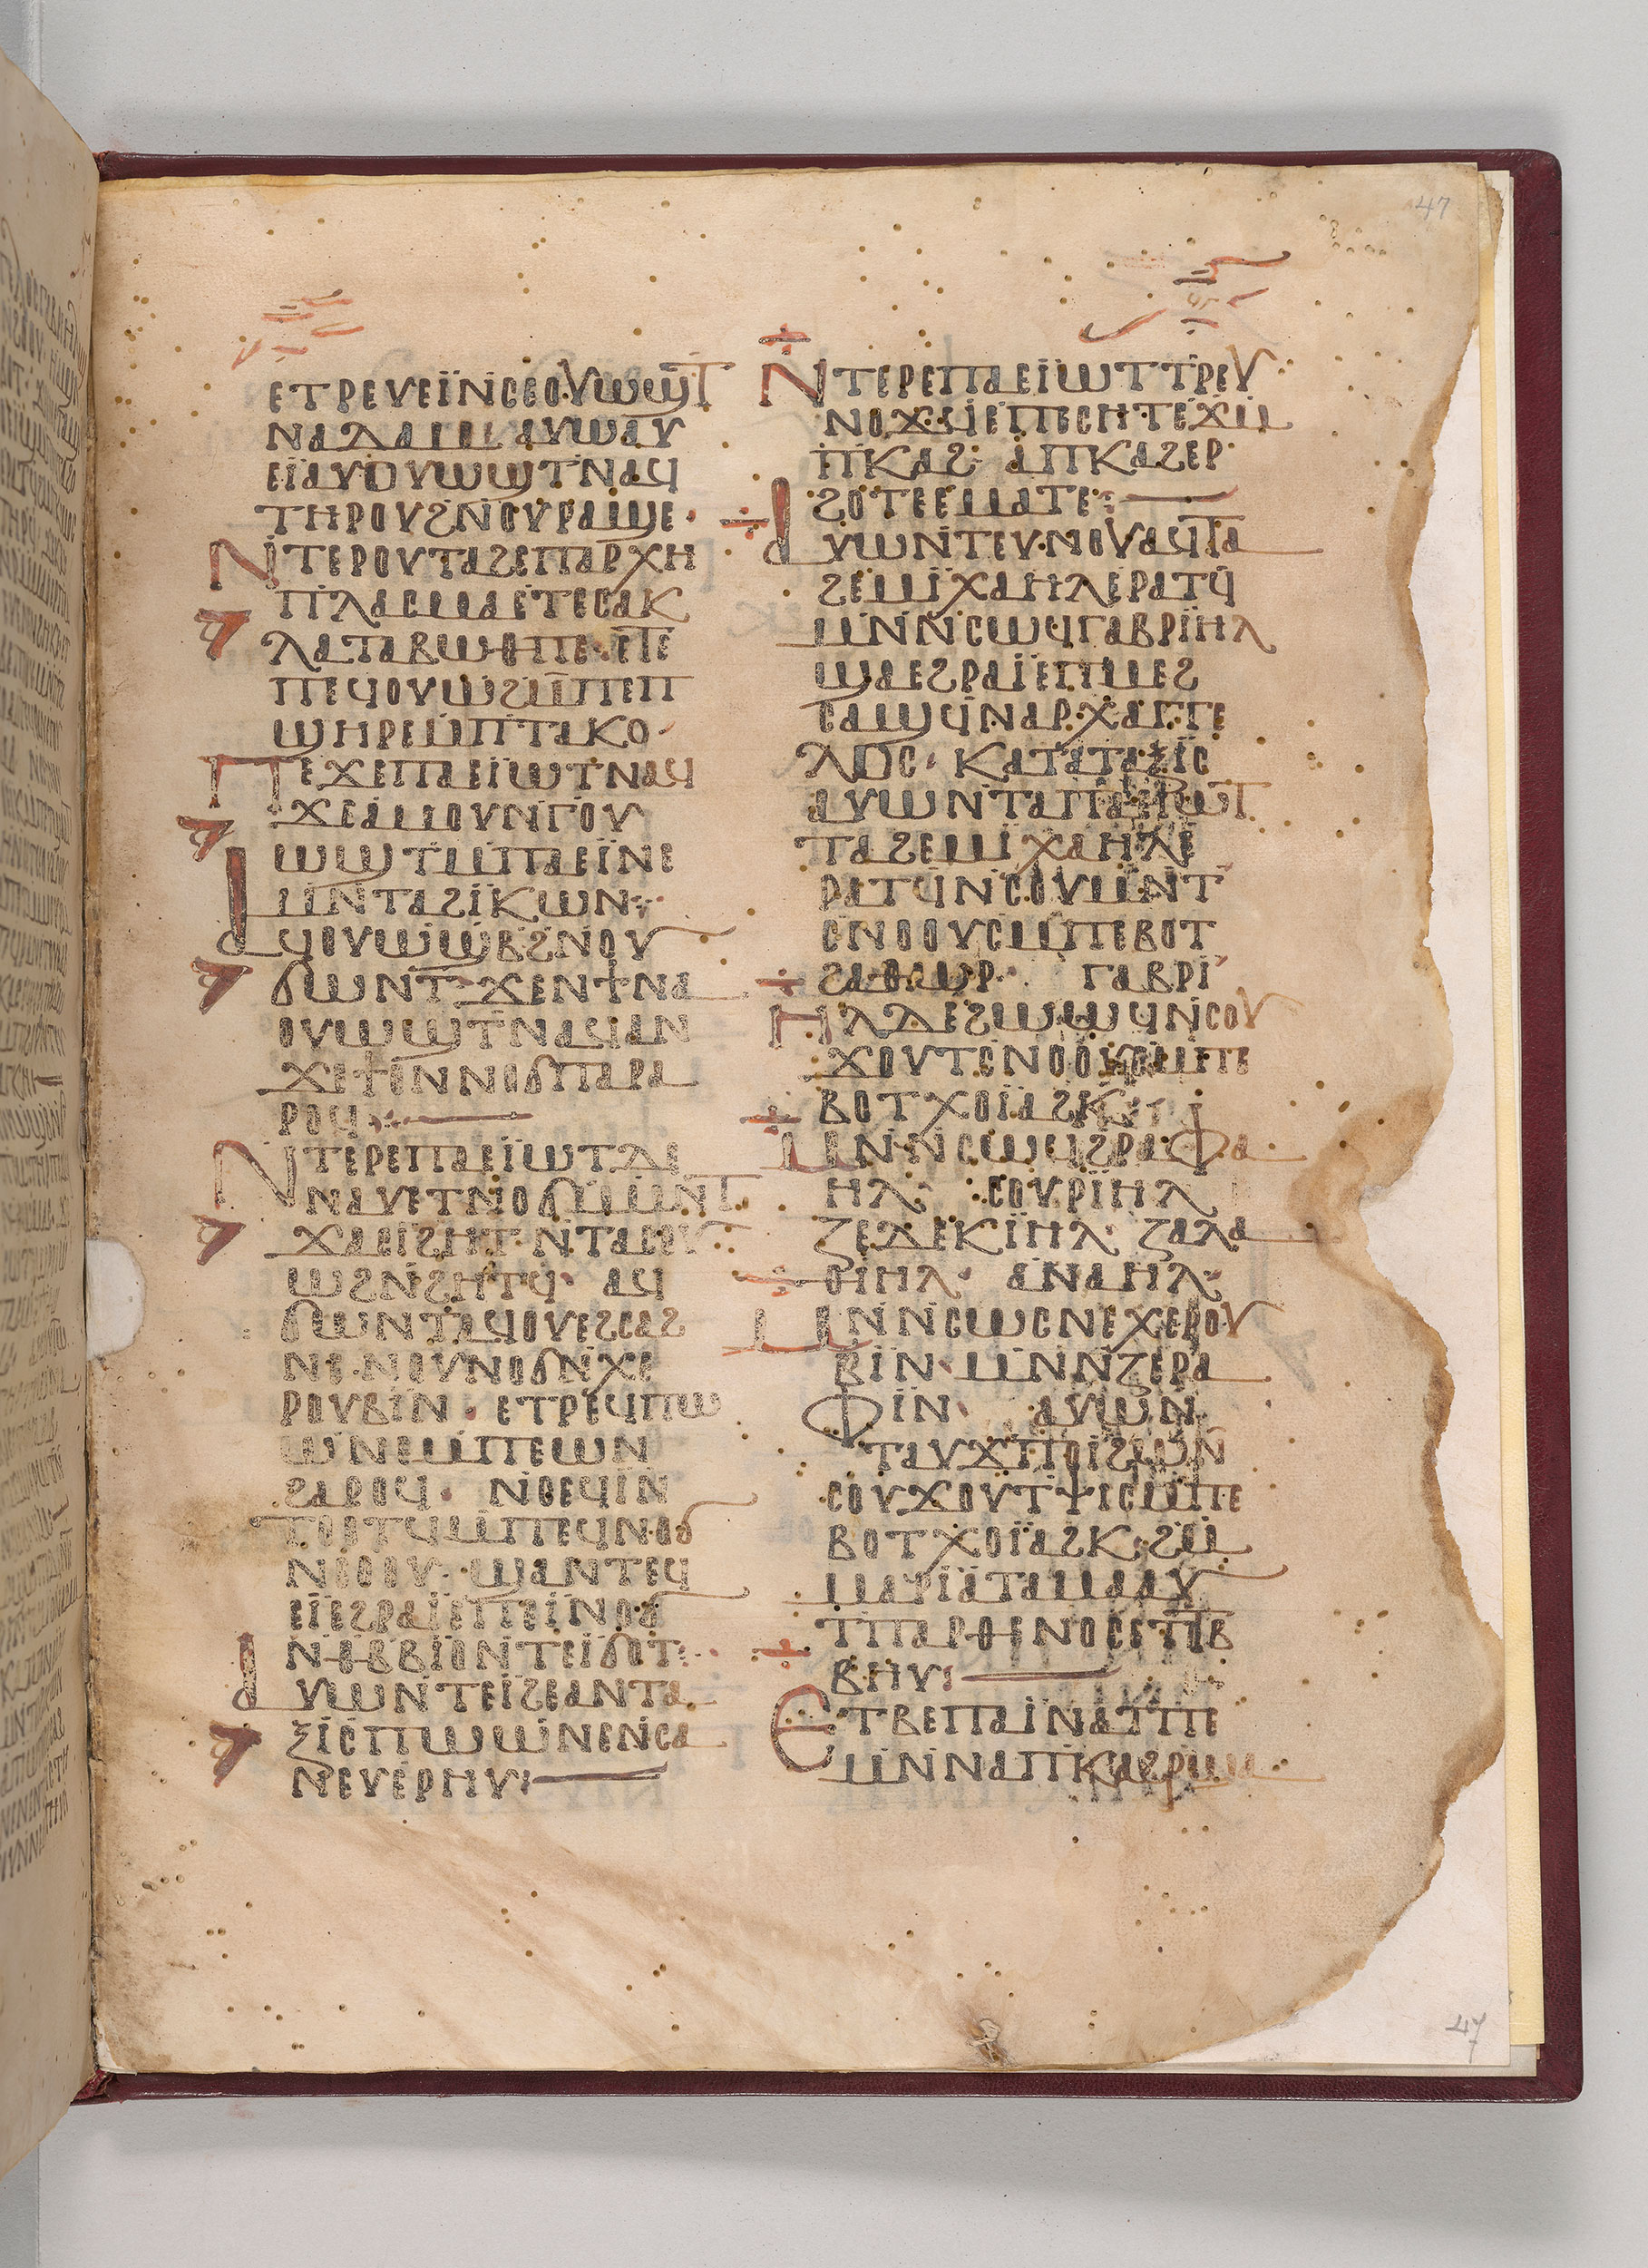 47
ⲉⲧⲣⲉⲩⲉⲓ̈ⲛⲥⲉⲟⲩⲱϣⲧ
ⲛⲁⲇⲁⲙ ⲁⲩⲱⲁⲩ
ⲉⲓ̈ⲁⲩⲟⲩⲱϣⲧⲛⲁϥ
ⲧⲏⲣⲟⲩϩⲛ̇ⲟⲩⲣⲁϣⲉ·
ⲛⲧⲉⲣⲟⲩⲧⲁϩⲉⲡⲁⲣⲭⲏ
ⲡⲗⲁⲥⲙⲁⲉⲧⲉⲥⲁⲕ
ⲗⲁⲧⲁⲃⲱⲑⲡⲉ·ⲉⲧⲉ
ⲡⲉϥⲟⲩⲱϩⲙ̄ⲡⲉⲡ
ϣⲏⲣⲉⲙ̇ⲡⲧⲁⲕⲟ·
ⲡⲉϫⲉⲡⲁⲉⲓ̈ⲱⲧⲛⲁϥ
ϫⲉⲁⲙⲟⲩⲛⲅ̇ⲟⲩ
ⲱϣⲧⲙ̇ⲡⲁⲉⲓ̈ⲛⲉ
ⲙⲛ̇ⲧⲁϩⲓ̈ⲕⲱⲛ·
ⲁϥⲟⲩⲱϣⲃϩⲛ̇ⲟⲩ
ϭⲱⲛⲧ·ϫⲉⲛϯⲛⲁ
ⲟⲩⲱϣⲧ̇ⲛⲁϥⲁⲛ
ϫⲉϯⲟⲛ̇ⲛⲟϭⲡⲁⲣⲁ
ⲣⲟϥ
ⲛⲧⲉⲣⲉⲡⲁⲉⲓ̈ⲱⲧⲇⲉ
ⲛⲁⲩⲉⲧⲛⲟϭⲙ̇ⲙⲛⲧ
ϫⲁⲥⲓϩⲏⲧ·ⲛ̇ⲧⲁⲥ
ⲱϩⲛ̇ϩⲏⲧϥ· ⲁϥ
ϭⲱⲛⲧⲁϥⲟⲩⲉϩⲥⲁϩ
ⲛⲉ·ⲛⲟⲩⲛⲟϭⲛ̇ⲭⲉ
ⲣⲟⲩⲃⲓ̈ⲛ· ⲉⲧⲣⲉϥⲡⲱ
ⲱⲛⲉⲙ̇ⲡⲉⲱⲛ
ϩⲁⲣⲟϥ· ⲛ̇ⲑⲉϥⲓ̈ⲛ
ⲧⲟⲟⲧϥⲙ̇ⲡⲉϥⲛⲟϭ
ⲛ̇ⲟⲟⲩ· ϣⲁⲛⲧⲉϥ
ⲉⲓ̈ⲉϩⲣⲁⲓ̈ⲉⲡⲉⲓ̈ⲛⲟϭ
ⲛ̇ⲑⲃⲃⲓ̈ⲟⲛ̇ⲧⲉⲓ̈ϭⲟⲧ·
ⲁⲩⲱⲛ̇ⲧⲉⲓ̈ϩⲉⲁⲛⲧⲁ
ⲝⲓⲥⲡⲱⲱⲛⲉⲛ̇ⲥⲁ
ⲛⲉⲩⲉⲣⲏⲩ⁝
ⲛⲧⲉⲣⲉⲡⲁⲉⲓ̈ⲱⲧⲧⲣⲉⲩ
ⲛⲟϫϥⲉⲡⲉⲥⲏⲧⲉϫⲙ
ⲡ̇ⲕⲁϩ· ⲁⲡⲕⲁϩⲉⲣ·
ϩⲟⲧⲉⲉⲙⲁⲧⲉ·
ⲁⲩⲱⲛ̇ⲧⲉⲩⲛⲟⲩⲁϥⲧⲁ
ϩⲉⲙⲓ̈ⲭⲁⲏⲗⲉⲣⲁⲧϥ̇
ⲙⲛ̇ⲛ̇ⲥⲱϥⲅⲁⲃⲣⲓ̈ⲏⲗ
ϣⲁⲉϩⲣⲁⲓ̈ⲉⲡⲙⲉϩ
ⲥⲁϣϥ̇ⲛⲁⲣⲭⲁⲅⲅⲉ
ⲗⲟⲥ· ⲕⲁⲧⲁⲧⲁⲝⲓ̈ⲥ
ⲁⲩⲱⲛⲧⲁⲡⲁⲓ̈ⲱⲧ
ⲧⲁϩⲉⲙⲓ̈ⲭⲁⲏⲗⲉ
ⲣⲁⲧϥⲛ̇ⲥⲟⲩⲙⲛⲧ
ⲥⲛⲟⲟⲩⲥⲙ̇ⲡⲉⲃⲟⲧ
ϩⲁⲑⲱⲣ· ⲅⲁⲃⲣⲓ
ⲏⲗⲇⲉϩⲱⲱϥⲛ̇ⲥⲟⲩ
ϫⲟⲩⲧⲥⲛⲟⲟⲩⲥⲙ̇ⲡⲉ
ⲃⲟⲧⲭⲟⲓ̈ⲁϩⲕ
ⲙⲛ̇ⲛ̇ⲥⲱϥϩⲣⲁⲫⲁ
ⲏⲗ· ⲥⲟⲩⲣⲓ̈ⲏⲗ
ⲍⲉⲇⲉⲕⲓ̈ⲏⲗ· ⲍⲁⲗⲁ
ⲑⲓⲏⲗ· ⲁⲛⲁⲏⲗ·
ⲙⲛ̇ⲛ̇ⲥⲱⲥⲛⲉⲭⲉⲣⲟⲩ
ⲃⲓⲛ·ⲙⲛ̇ⲛ̇ⲍⲉⲣⲁ
ⲫⲓ̈ⲛ· ⲁⲩⲱⲛ
ⲧⲁⲩϫⲡⲟⲓ̈ϩⲱⲛ̇
ⲥⲟⲩϫⲟⲩⲧⲯⲓⲥⲙ̇ⲡⲉ
ⲃⲟⲧⲭⲟⲓ̈ⲁϩⲕ·ϩⲙ
ⲙⲁⲣⲓ̈ⲁⲧⲁⲙⲁⲁⲩ
ⲧⲡⲁⲣⲑⲉⲛⲟⲥⲉⲧⲧⲃ
ⲃⲏⲩ⁝
ⲉⲧⲃⲉⲡⲁⲓ̇ⲛⲁⲧⲡⲉ
ⲙⲛ̇ⲛⲁⲡⲕⲁϩⲣⲓⲙⲉ
47